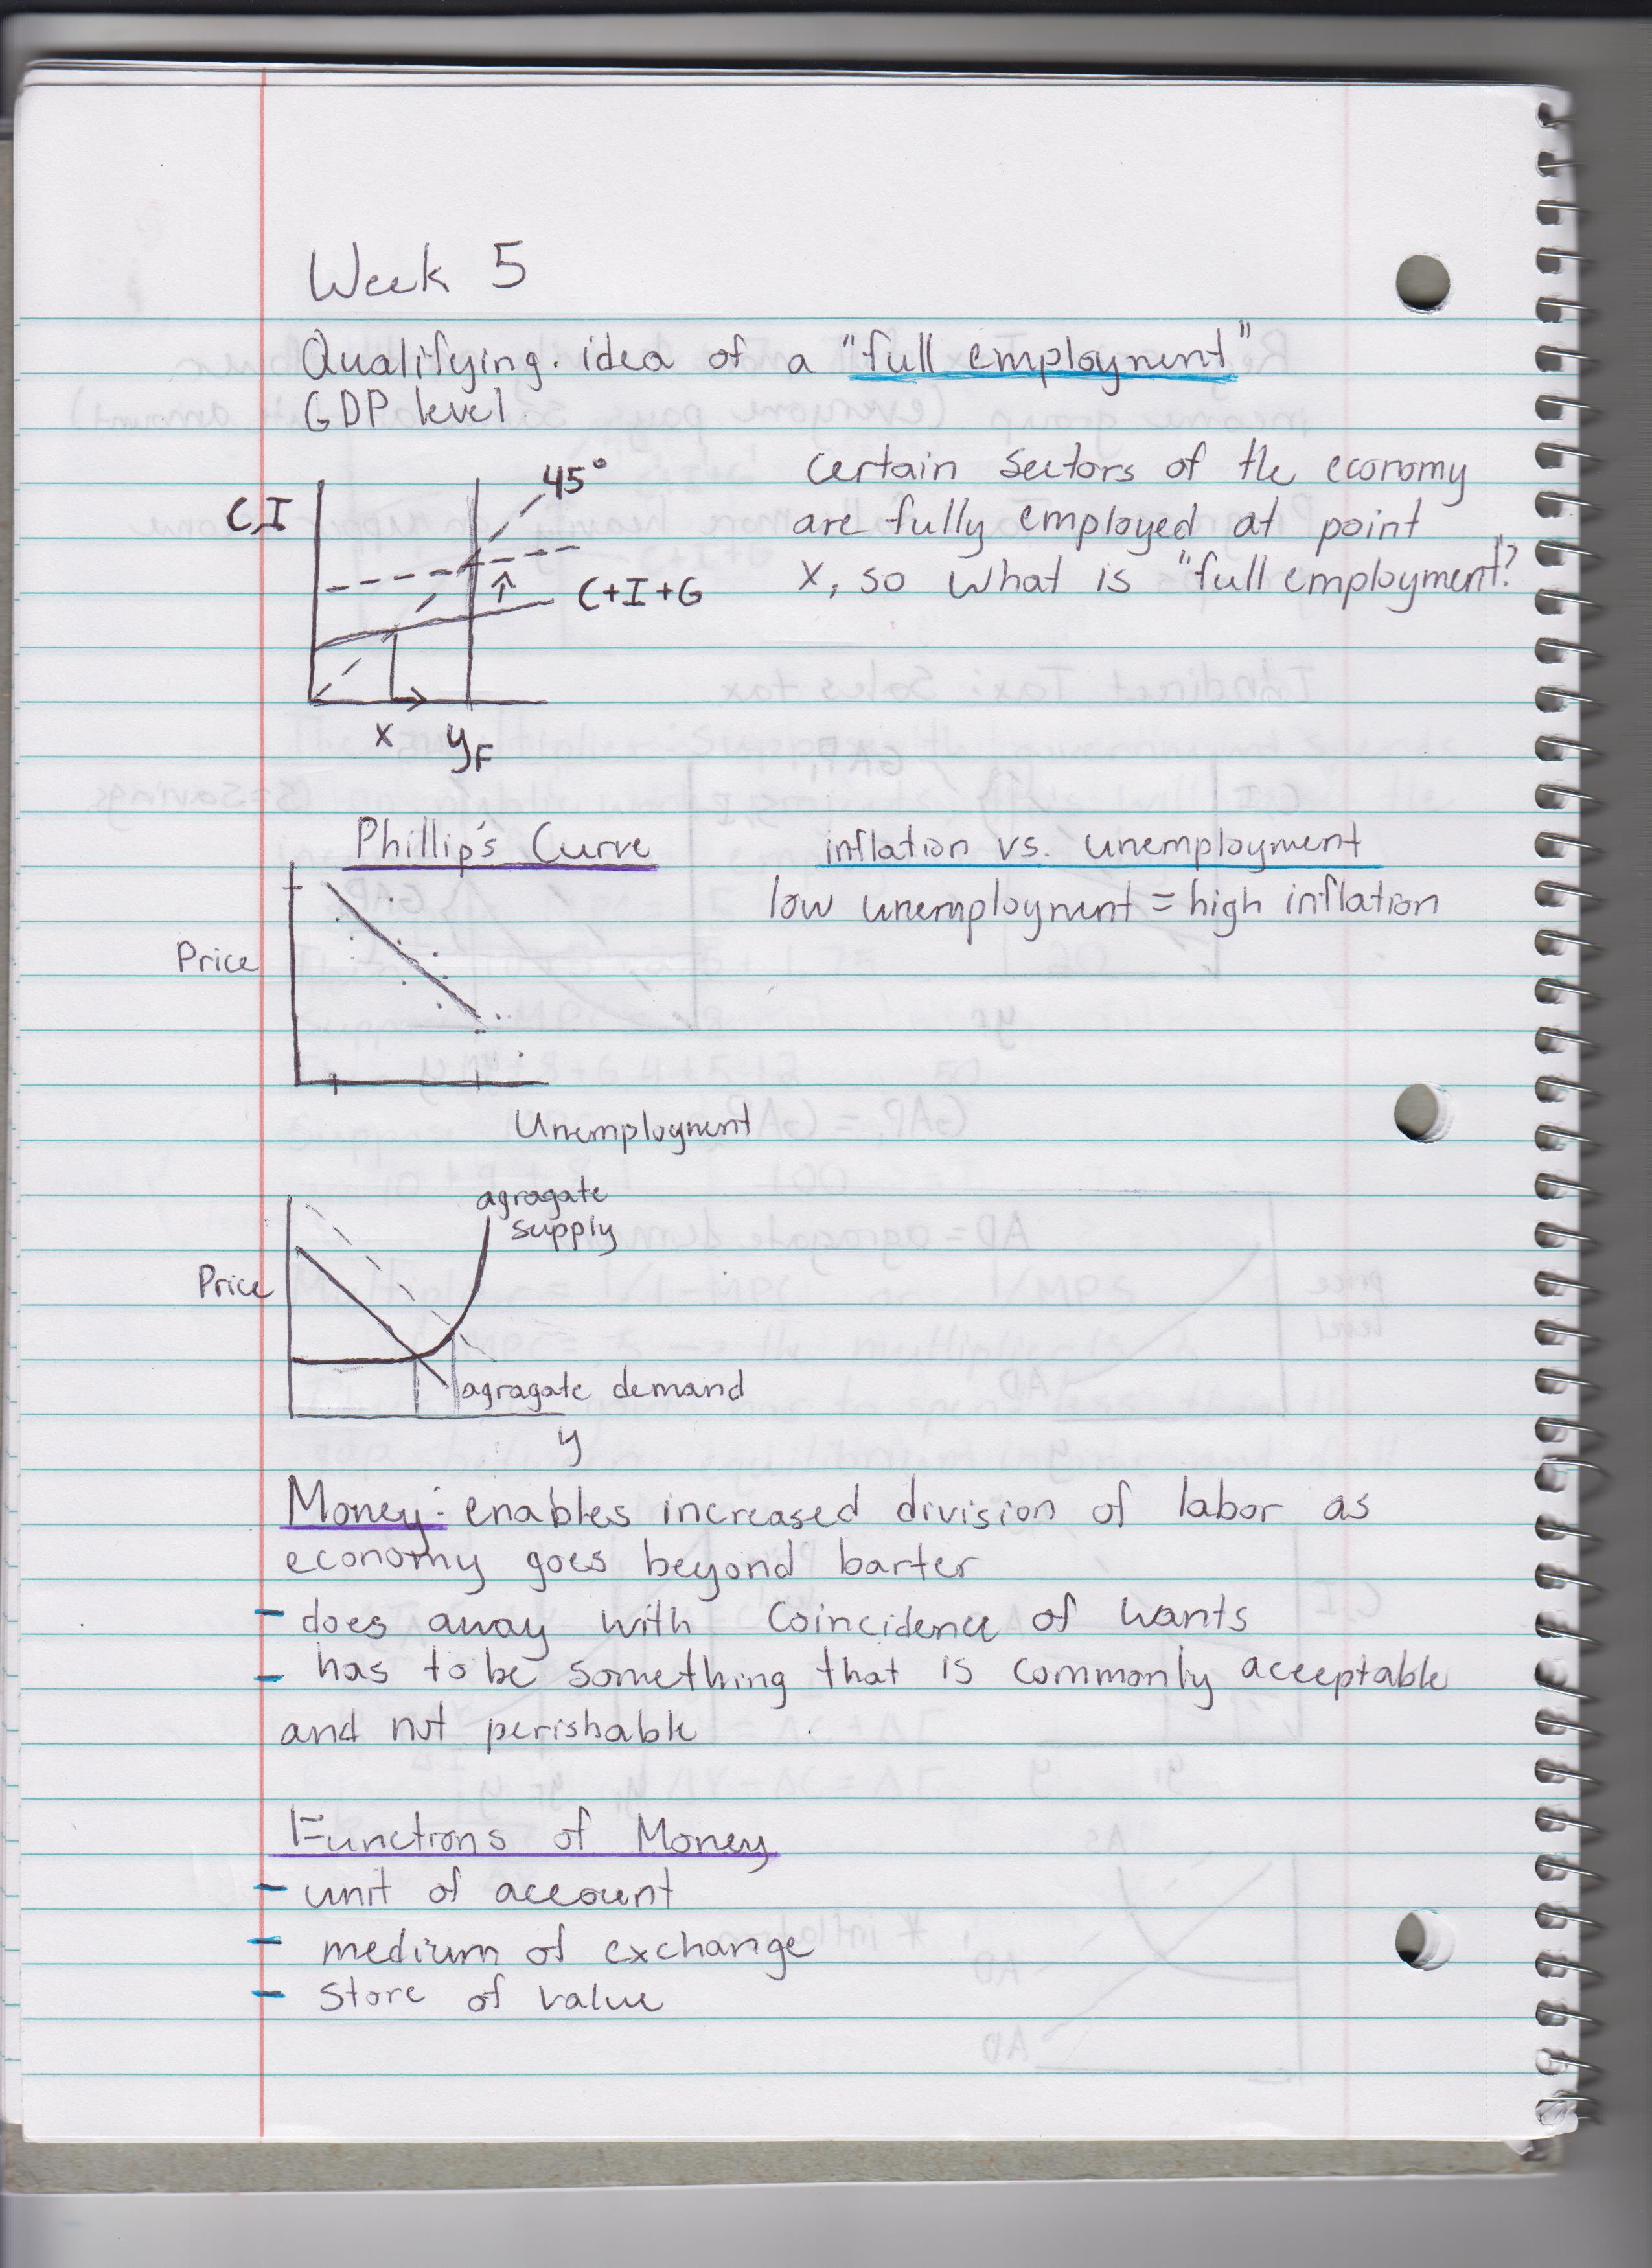 Week 5
Qualifying idea of a "full employment"
GDP level
certain sectors of the economy
are fully employed at point
x, so what is "full employment"?
C,I
45°
C+I+G
x
yF
Phillip's Curve
inflation vs. unemployment
low unemployment = high inflation
Price
Unemployment
agragate
supply
Price
agragate demand
y
Money: enables increased division of labor as
economy goes beyond barter
- does away with Coincidence of wants
- has to be something that is commonly acceptable
and not perishable
Functions of Money
- unit of account
- medium of exchange
- Store of value